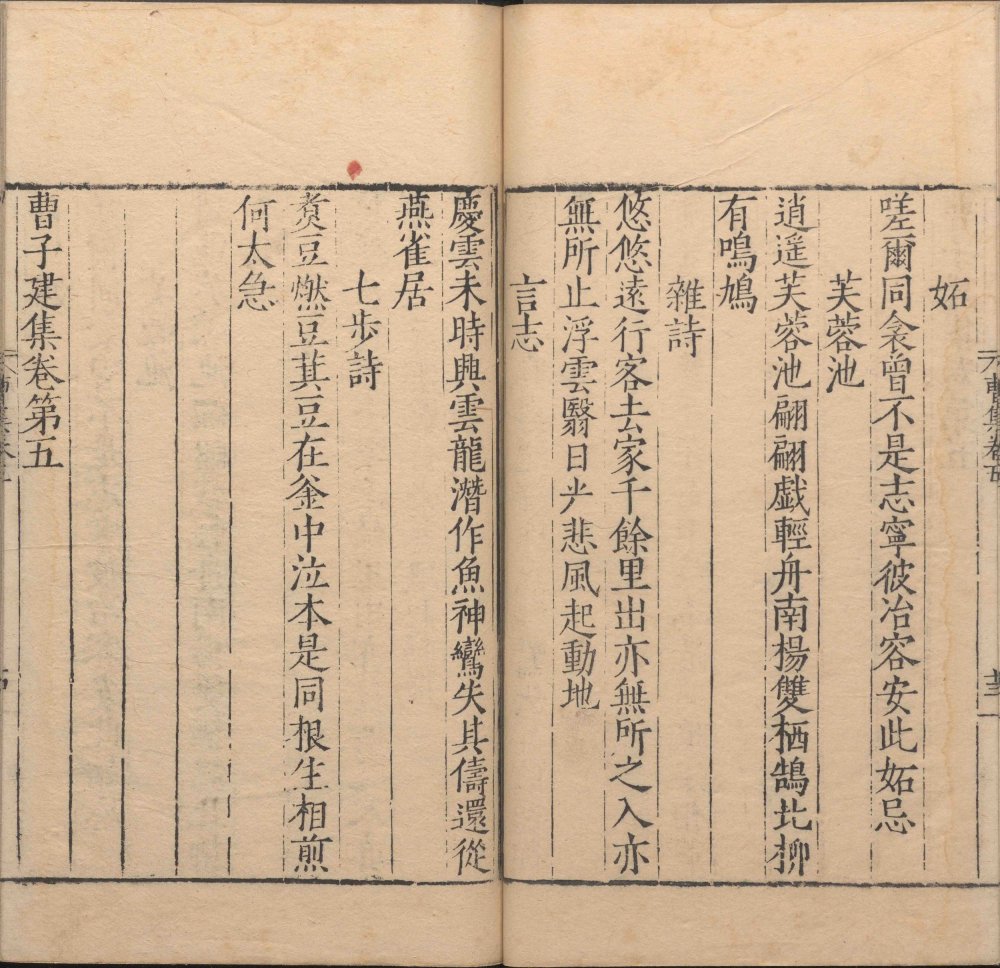 妬
嗟爾同衾曾不是志寧彼冶容安此妬忌
芙蓉池
逍遥芙蓉池翩翩戯輕舟南揚雙栖鵠北栁
有鳴鳩
雜詩
悠悠逺行客去家千餘里出亦無所之入亦
無所止浮雲翳日光悲風起動地
言志
慶雲未時興雲龍潜作魚神鸞失其儔還從
燕雀居
七歩詩
煑豆燃豆萁豆在釜中泣本是同根生相煎
何太急
曹子建集卷第五